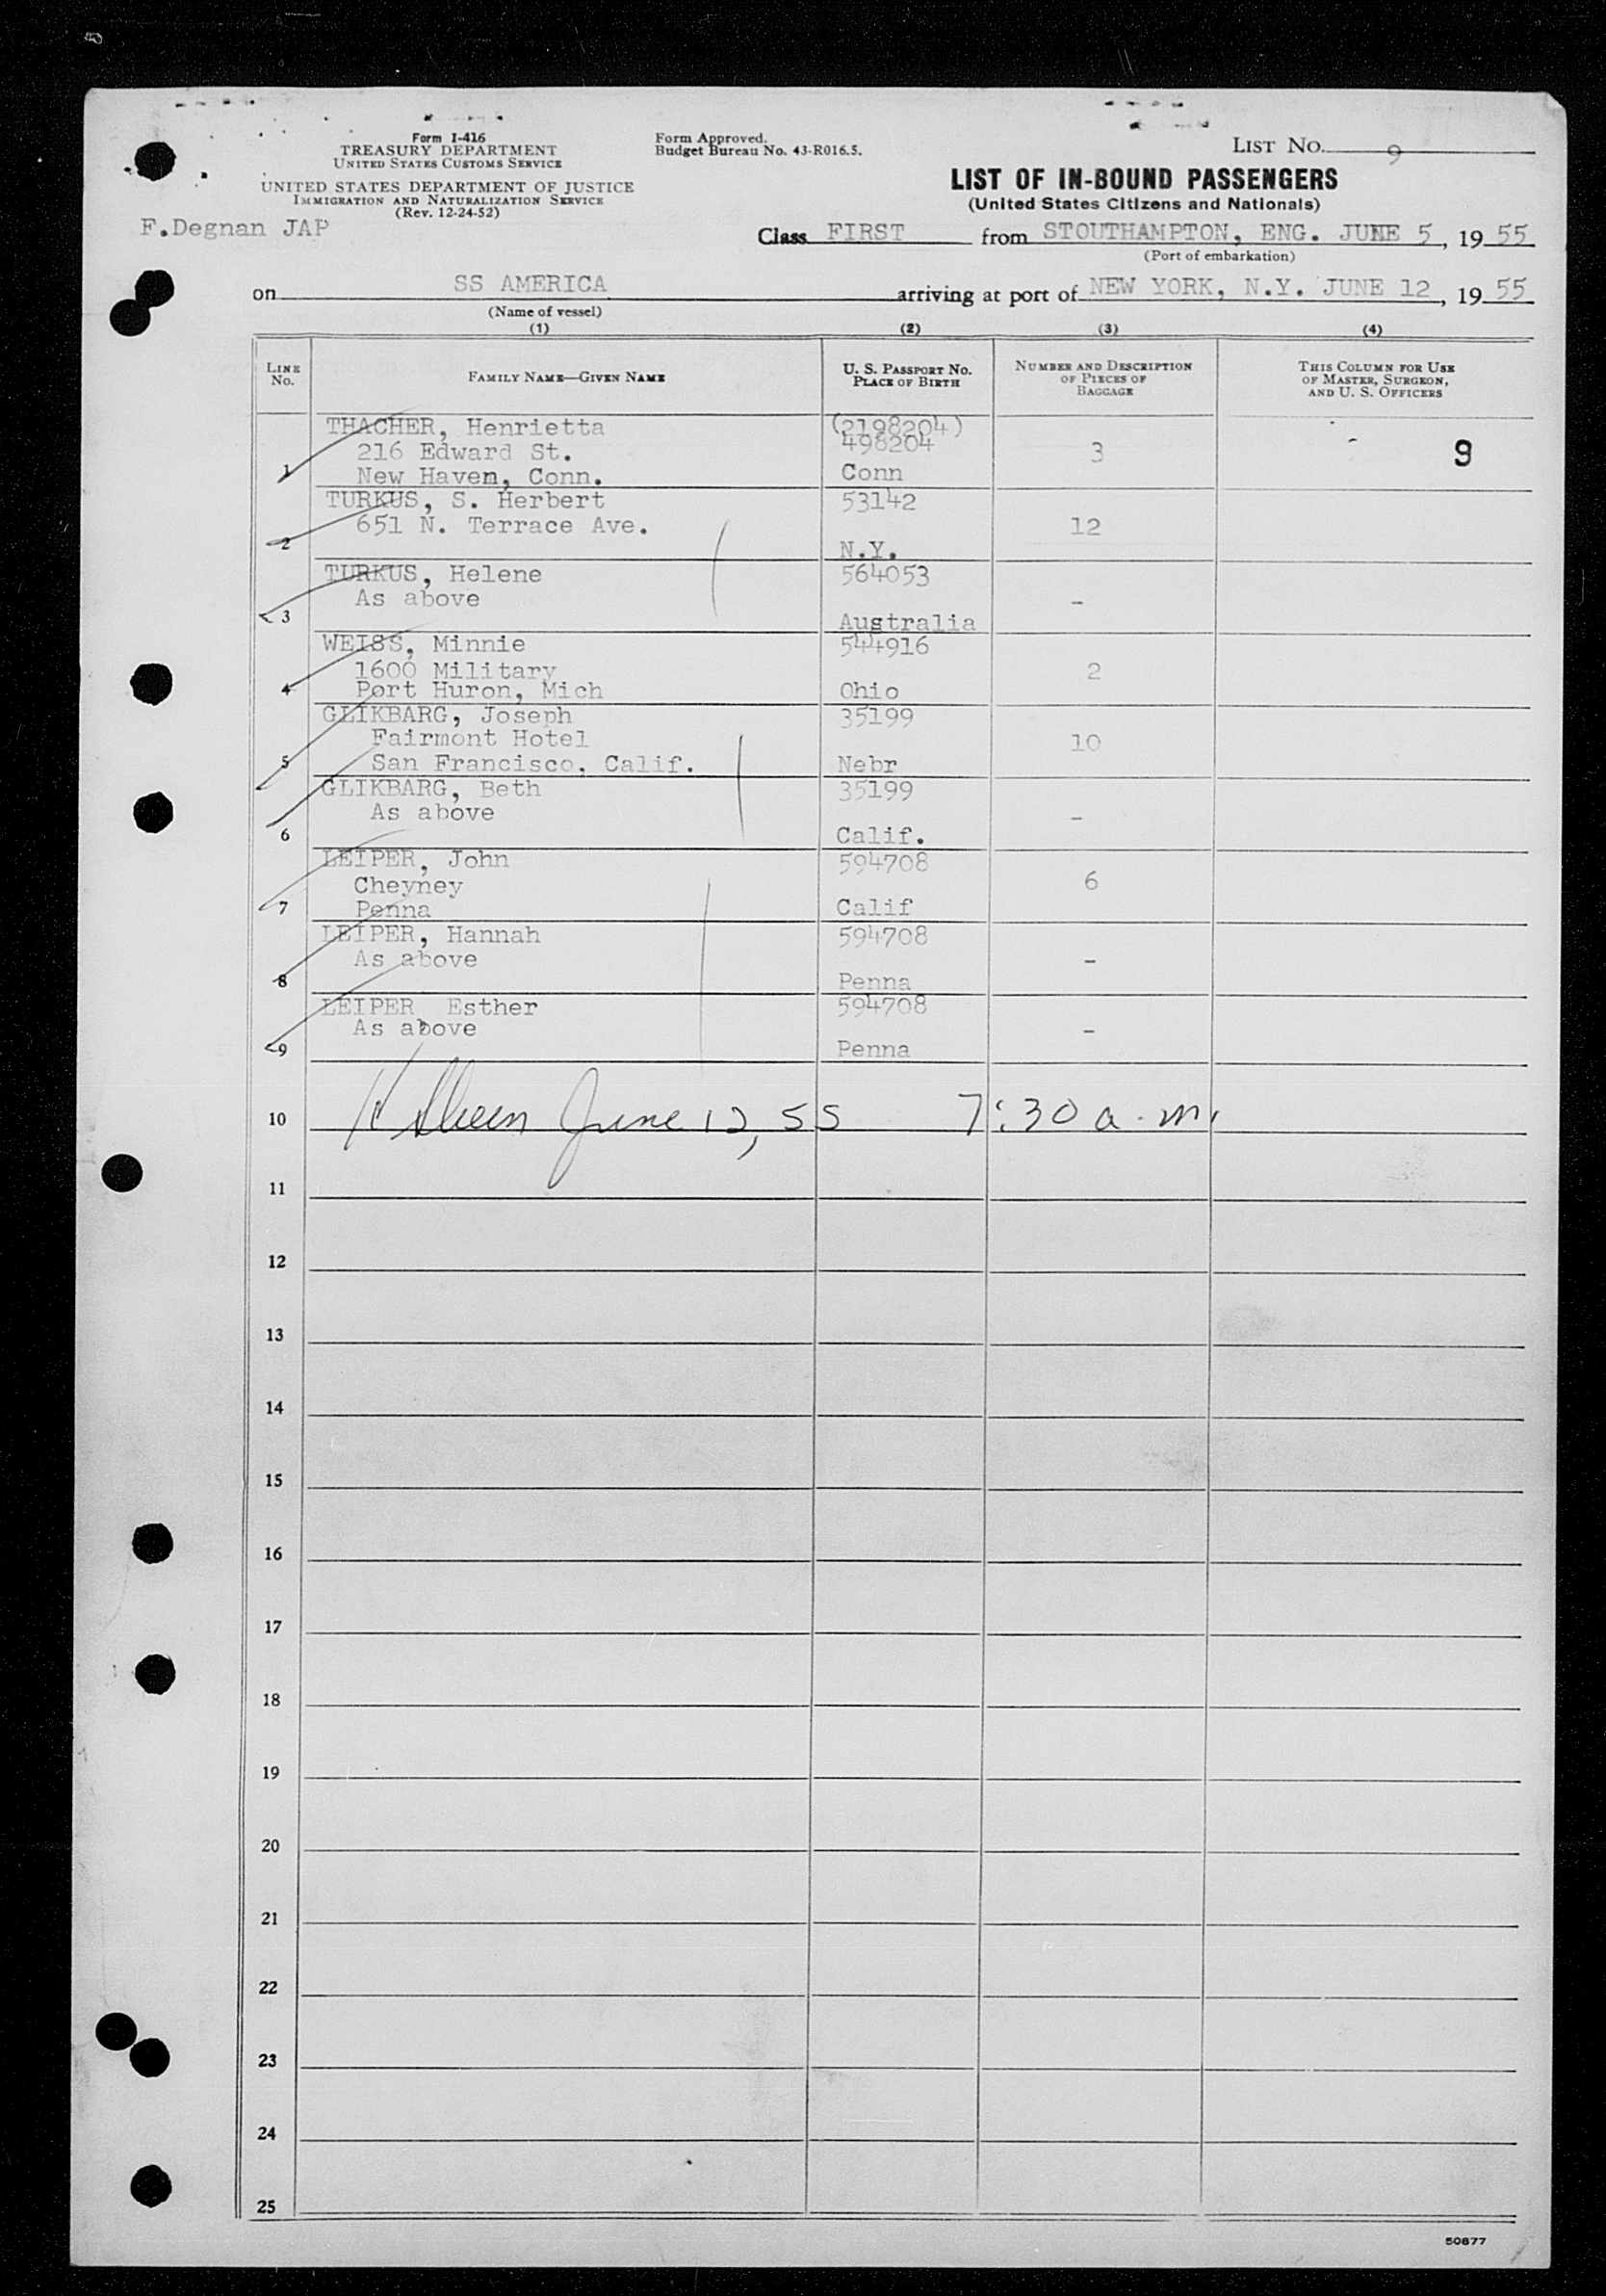 Form I-416
TREASURY DEPARTMENT
UNITED STATES CUSTOMS SERVICE
UNITED STATES DEPARTMENT OF JUSTICE
IMMIGRATION AND NATURALIZATION SERVICE
(Rev. 12-24-52)
Form Approved.
Budget Bureau No. 43-R016.5.
LIST NO. 9
LIST OF IN-BOUND PASSENGERS
(United States Citizens and Nationals)
F.Degnan JAP
Class FIRST from STOUTHAMPTON, ENG. JUNE 5, 19 55
(Port of embarkation)
on SS AMERICA arriving at port of NEW YORK, N.Y. JUNE 12, 19 55
(Name of vessel)
(1) (2) (3) (4)
LINE No. FAMILY NAME—GIVEN NAME U. S. PASSPORT NO. PLACE OF BIRTH NUMBER AND DESCRIPTION OF PIECES OF BAGGAGE THIS COLUMN FOR USE OF MASTER, SURGEON, AND U. S. OFFICERS
THACHER, Henrietta (2198204)
216 Edward St. 498204 3 9
1 New Haven, Conn. Conn
TURKUS, S. Herbert 53142
651 N. Terrace Ave. 12
2 N.Y.
TURKUS, Helene 564053
As above -
3 Australia
WEISS, Minnie 544916
1600 Military 2
4 Port Huron, Mich Ohio
GLIKBARG, Joseph 35199
Fairmont Hotel 10
5 San Francisco, Calif. Nebr
GLIKBARG, Beth 35199
As above -
6 Calif.
LEIPER, John 594708
Cheyney 6
7 Penna Calif
LEIPER, Hannah 594708
As above -
8 Penna
LEIPER Esther 594708
As above -
9 Penna
10 June 12, 55 7:30 a.m.
11
12
13
14
15
16
17
18
19
20
21
22
23
24
25
50877